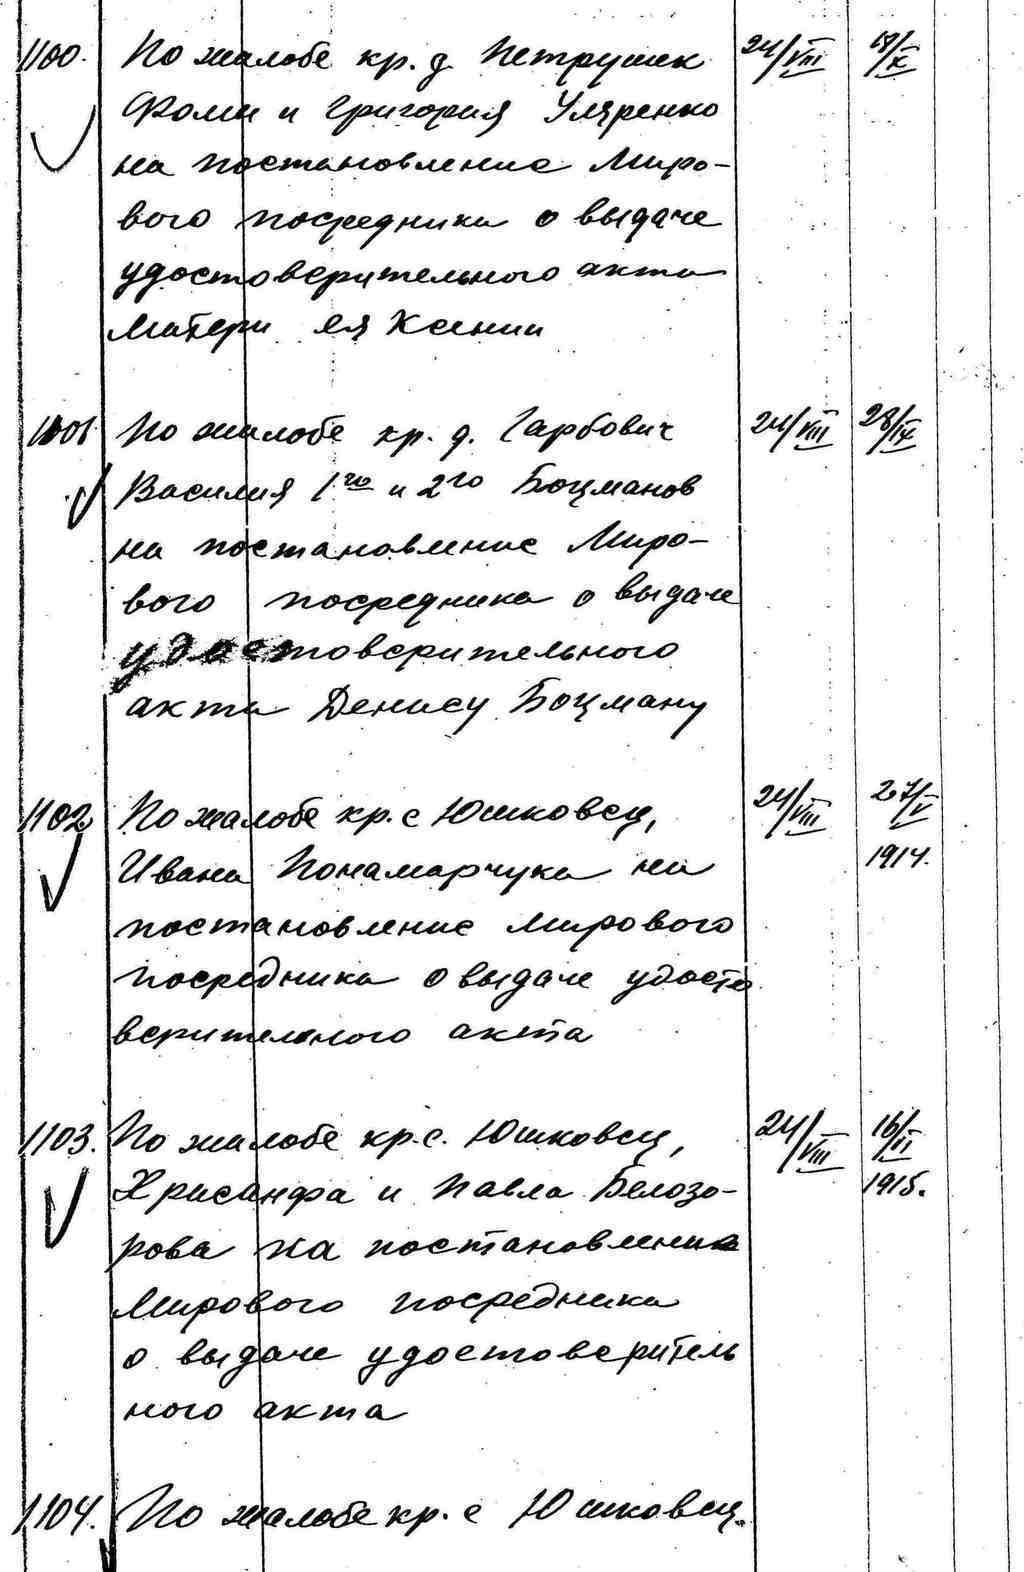 1100. По жалобе кр. д. Петрушек 24/VIII 18/X
Фомы и Григория Уляренко
на постановление Миро-
вого посредника о выдаче
удостоверительного акта
Матери ея Ксении
1101 По жалобе кр. д. Гарбович 24/VIII 28/IX
Василия 1го и 2го Боцманов
на постановление Миро-
вого посредника о выдаче
удостоверительного
акта Денису Боцману
1102 По жалобе кр. с Юшковец, 24/VIII 27/V
Ивана Понамарчука на 1914.
постановление мирового
посредника о выдаче удосто
верительного акта
1103. По жалобе кр. с. Юшковец, 24/VIII 16/II
Хрисанфа и Павла Белозо- 1915.
рова на постановление
Мирового посредника
о выдаче удостоверитель
ного акта
1104. По жалобе кр. с Юшковец.